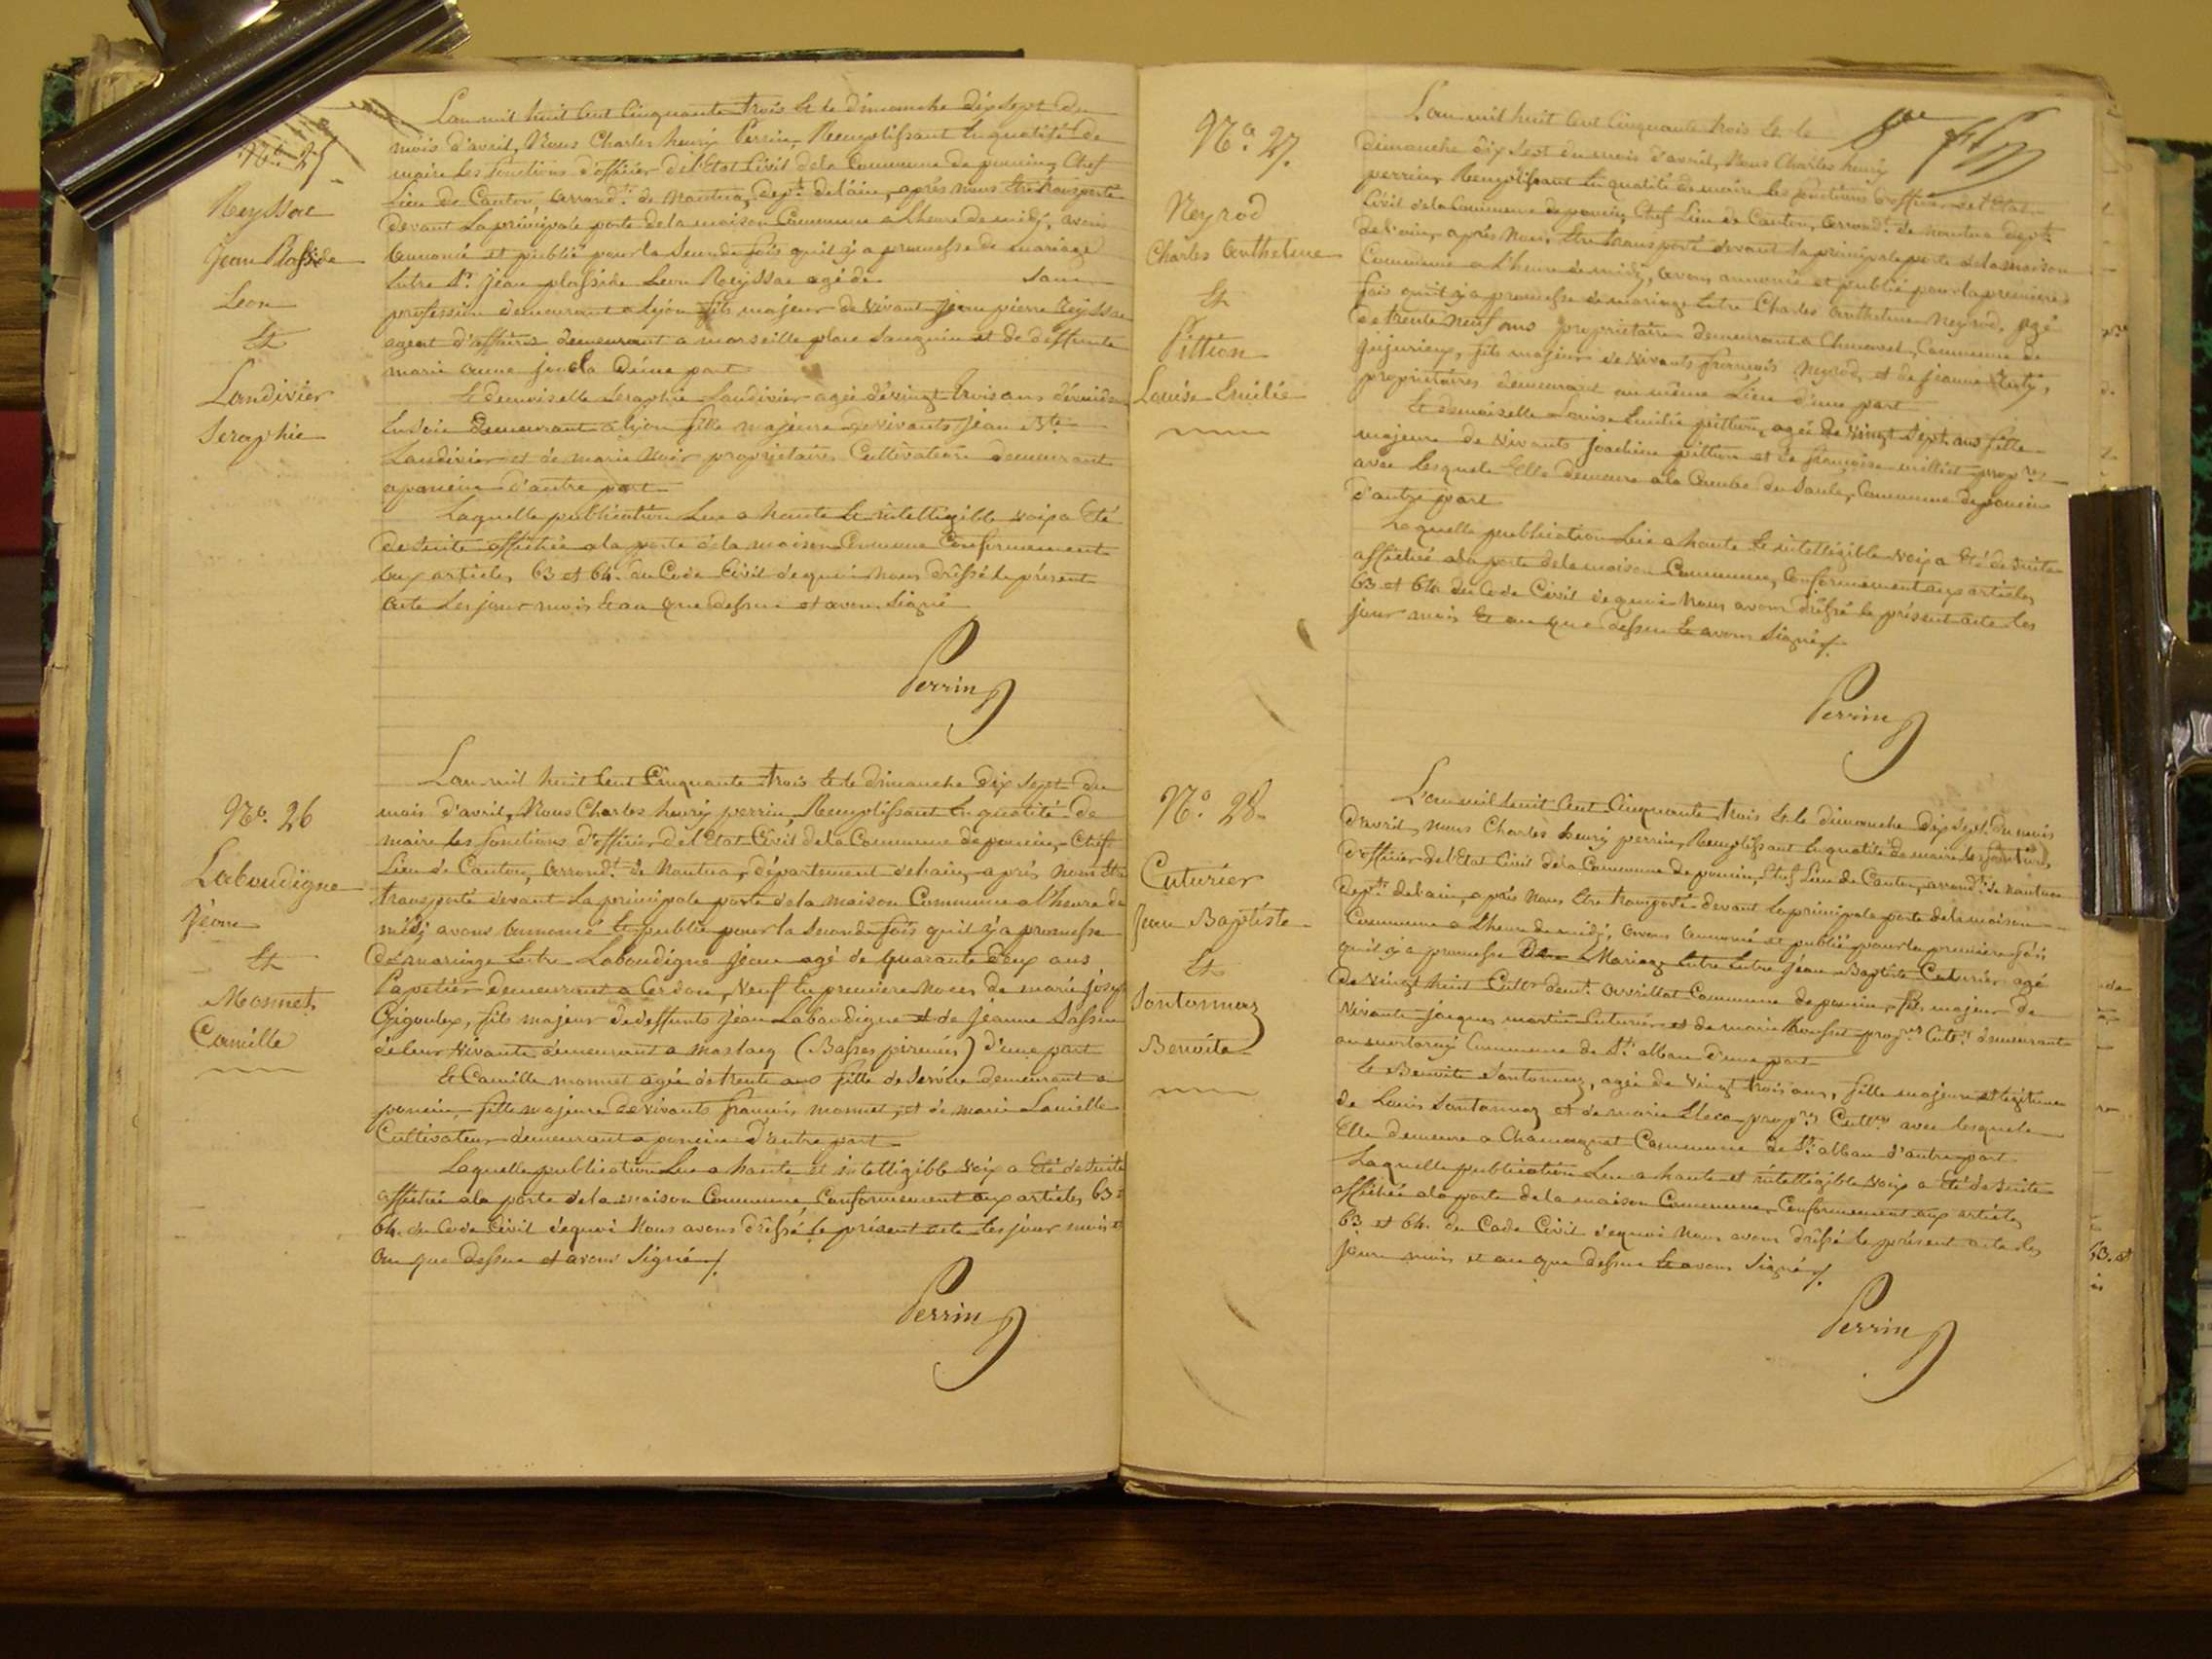 No. 25
Reyssac
Jean Plasside
Leon
Et
Landivier
Seraphie
L'an mil huit Cent Cinquante trois Et le dimanche dix sept du
mois d'avril, Nous Charles henry Perrin, Remplissant En qualité de
maire les fonctions d'officier de l'Etat Civil de la Commune de poncin, Chef
Lieu de Canton, arrond.t de Nantua, dep.t de l'ain, après nous Etre transporté
devant La principale porte de la maison Commune a L'heure de midi, avons
annoncé et publié pour la seconde fois qu'il y a promesse de mariage
Entre Sr. jean plasside Leon Reyssac agé de sans
profession demeurant a Lyon fils majeur de vivant jean pierre Reyssac
agent d'affaires demeurant a marseille place et de deffunte
marie anne d'une part
Et demoiselle Seraphie Landivier agée de vingt trois ans dévideuse
En soie demeurant a lyon fille majeure de vivants jean Bte
Landivier et de marie Noir propriétaires Cultivateurs demeurant
a poncin d'autre part
Laquelle publication Lue a haute Et intelligible voix a Eté
de suite affichée a la porte de la maison Commune Conformement
aux articles 63 et 64 du Code Civil de quoi Nous drèssé le présent
acte Les jour mois Et an que dessus et avons Signé
Perrin
No. 26
Laboudigne
Jean
Et
Monnet
Camille
L'an mil huit Cent Cinquante trois Et le dimanche dix sept du
mois d'avril, Nous Charles henry perrin, Remplissant En qualité de
maire les fonctions d'officier de l'Etat Civil de la Commune de poncin, Chef
Lieu de Canton, arrond.t de Nantua, département de l'ain, après nous Etre
transporté devant La principale porte de la maison Commune a l'heure de
midi avons annoncé Et publié pour la seconde fois qu'il y a promesse
de mariage Entre Laboudigne jean agé de quarante deux ans
Papetier demeurant a Cerdon, veuf En premiere noces de marie josephe
fils majeur de deffunts jean Laboudigne et de jeanne
de leur vivants demeurant a maslacq (Basses pirénées) d'une part
Et Camille monnet agée de trente ans fille de service demeurant a
poncin, fille majeure de vivants francois monnet, et de marie
Cultivateurs demeurant a poncin d'autre part
Laquelle publication Lue a haute et intelligible voix a Eté de suite
affichée a la porte de la maison Commune, Conformement aux articles 63 et
64 du Code Civil de quoi Nous avons drèssé le présent acte les jour mois et
an que dessus et avons Signé
Perrin
No. 27.
Neyrod
Charles anthelme
Et
Pittion
Louise Emilie
L'an mil huit Cent Cinquante trois Et le
dimanche dix sept du mois d'avril, Nous Charles henry
perrin, Remplissant En qualité de maire les fonctions d'officier de l'Etat
Civil de la Commune de poncin, Chef Lieu de Canton, arrond.t de nantua dep.t
de l'ain, après Nous Etre transporté devant la principale porte de la maison
Commune a L'heure de midi, avons annoncé et publié pour la premiere
fois qu'il y a promesse de mariage Entre Charles anthelme neyrod, agé
de trente neuf ans propriétaire demeurant a Chenavel, Commune de
jujurieux, fils majeur de vivants francois neyrod, et de jeanne
propriétaires demeurant au même Lieu d'une part
Et demoiselle Louise Emilie pittion, agée de vingt sept ans fille
majeure de vivants joachim pittion et de francoise milliet prop.res
avec Lesquels Elle demeure a la Combe du Saule, Commune de poncin
d'autre part
Laquelle publication Lue a haute Et intelligible voix a Eté de suite
affichée a la porte de la maison Commune, Conformement aux articles
63 et 64 du Code Civil de quoi Nous avons drèssé le présent acte Les
jour mois Et an que dessus Et avons Signé
Perrin
No. 28.
Cuturier
Jean Baptiste
Et
Santonnaz
Benoite
L'an mil huit Cent Cinquante trois Et le dimanche dix Sept du mois
d'avril, nous Charles henry perrin, Remplissant En qualité de maire les fonctions
d'officier de l'Etat Civil de la Commune de poncin, Chef Lieu de Canton, arrond.t de nantua
dep.t de l'ain, après Nous Etre transporté devant la principale porte de la maison
Commune a L'heure de midi, avons annoncé et publié pour la premiere fois
qu'il y a promesse De Mariage Entre Entre jean Baptiste Cuturier agé
de vingt huit Cult.r dem.t Commune de poncin, fils majeur de
vivants jacques martin Cuturier et de marie prop.res Cult.rs demeurant
au mortarey Commune de St. alban d'une part
Et Benoite Santonnaz, agée de vingt trois ans, fille majeure et légitime
de Louis Santonnaz et de marie prop.res Cult.rs avec lesquels
Elle demeure a Champagnat Commune de St. alban d'autre part
Laquelle publication Lue a haute et intelligible voix a Eté de suite
affichée a la porte de la maison Commune, Conformement aux articles
63 et 64 du Code Civil de quoi Nous avons drèssé le présent acte les
jour mois et an que dessus Et avons Signé
Perrin